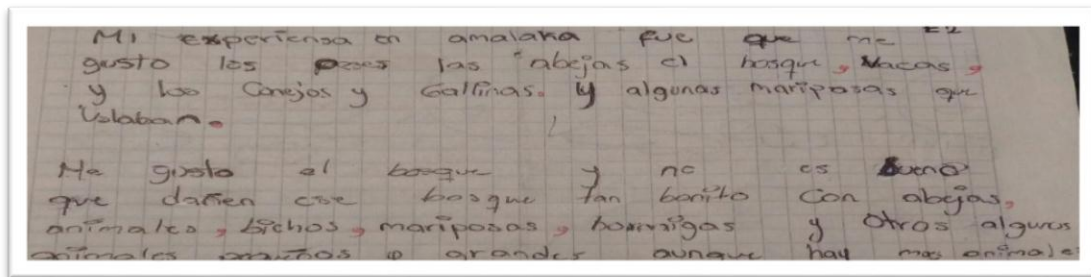 Mi experiensa en amalaka fue que me E2
gusto los peces las abejas el bosque, vacas,
y los Conejos y Gallinas. y algunas mariposas que
volaban.
Me gusto el bosque y no es bueno
que dañen ese bosque tan bonito con abejas,
animales, bichos, mariposas, hormigas y otros algunos
animales pequeños o grandes aunque hay mas animale